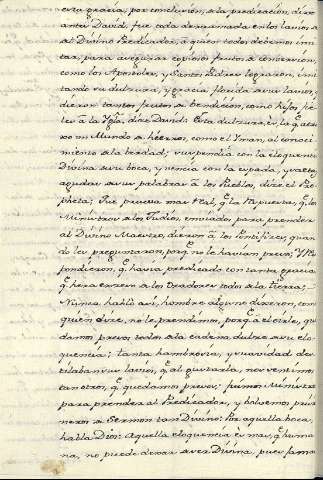 esta gracia, por conclusión, a la predicación, dixo
antes David, fue toda derramada en los lavios, a
al Divino Predicador, a quien todos debemos imi
tar, para asegurar copiosos frutos, a conversion,
como los Apostoles, y Santos Padres lograron, imi
tando su dulzura, y gracia florida a sus lavios;
dieron tantos frutos a bendicion, como hijos fie
les a la Ygla, dize David: Esta dulzura es, la q.
un Mundo a hierro, como el Yman, al conoci
miento a la berdad; suspendia con la eloquencia
Divina a su boca, y vencia con la espada, y
agudas a sus palabras a los Pueblos, dize el Pro
pheta; Que prueva mas Real, q. la Rspuesta, q. los
Ministros a los Judios, enviados para prender
al Divino Maestro, dieron a los Pontifices, quan
do les preguntaron, porq. no le havian preso; Y Rs
pondieron, q. havia predicado con tanta gracia
q. hera
Nunca habló asi, hombre alguno dixeron, com
quien dize, no le prendimos, porq. a el oirle, que
damos presos todos a la cadena dulce a su elo
quencia; tanta hambrosia, y suavidad des
tilaban sus lavios, q. al gustarla, nos sentimos
tan otros, q. quedamos presos; fuimos Ministros
para prender al Predicador, y bolvemos prisio
neros a Sermon tan Divino: Por aquella boca,
habla Dios: Aquella eloquencia es mas, q. huma
na, no puede dexar a ser Divina, pues